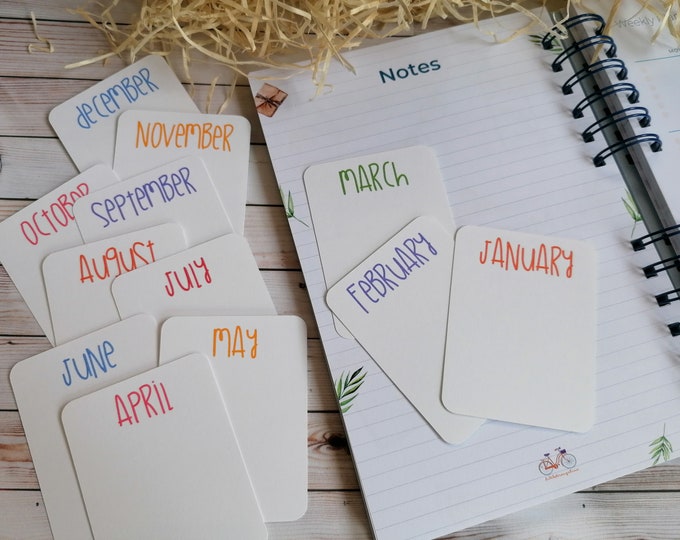 Weekly
Notes
December
NOVEMBER
OCTOBER
SEPTEMBER
AUGUST
JULY
JUNE
MAY
APRIL
MARCH
FEBRUARY
JANUARY